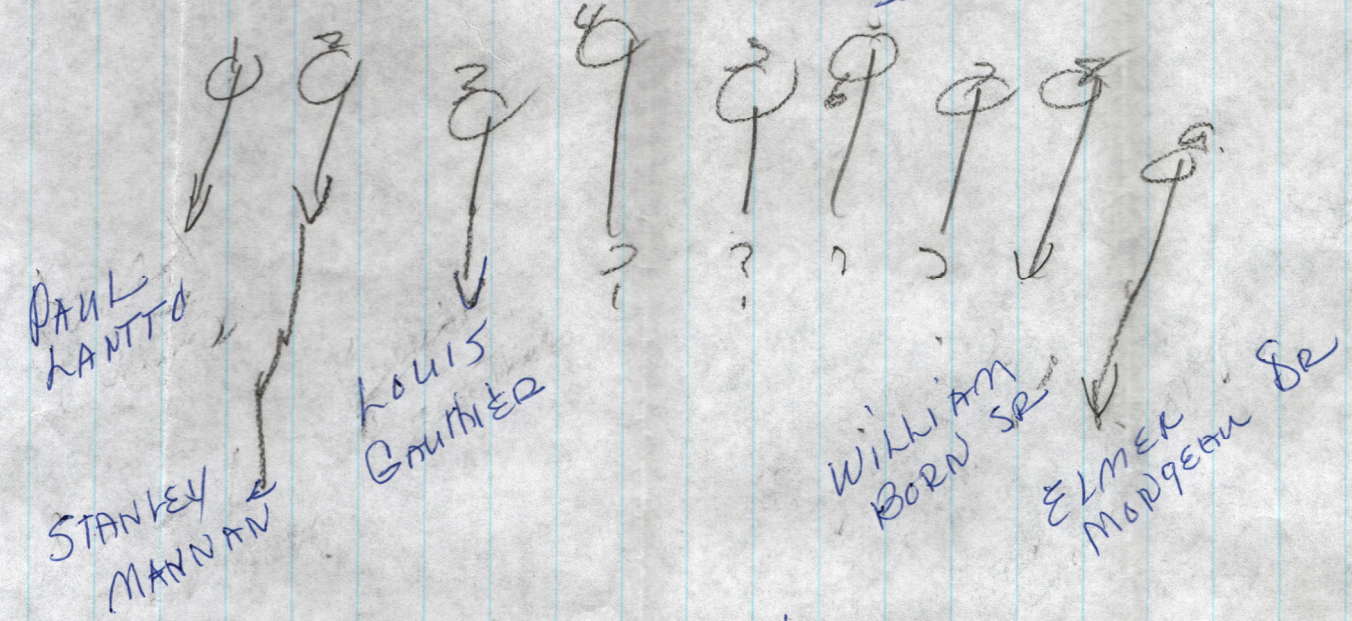 1 2 3 4 2 6 7 8 9.
? ? ? ?
PAUL
LANTTO
STANLEY
MANNAN
LOUIS
GAUTHIER
WILLIAM
BORN SR
ELMER
MONGEAU SR